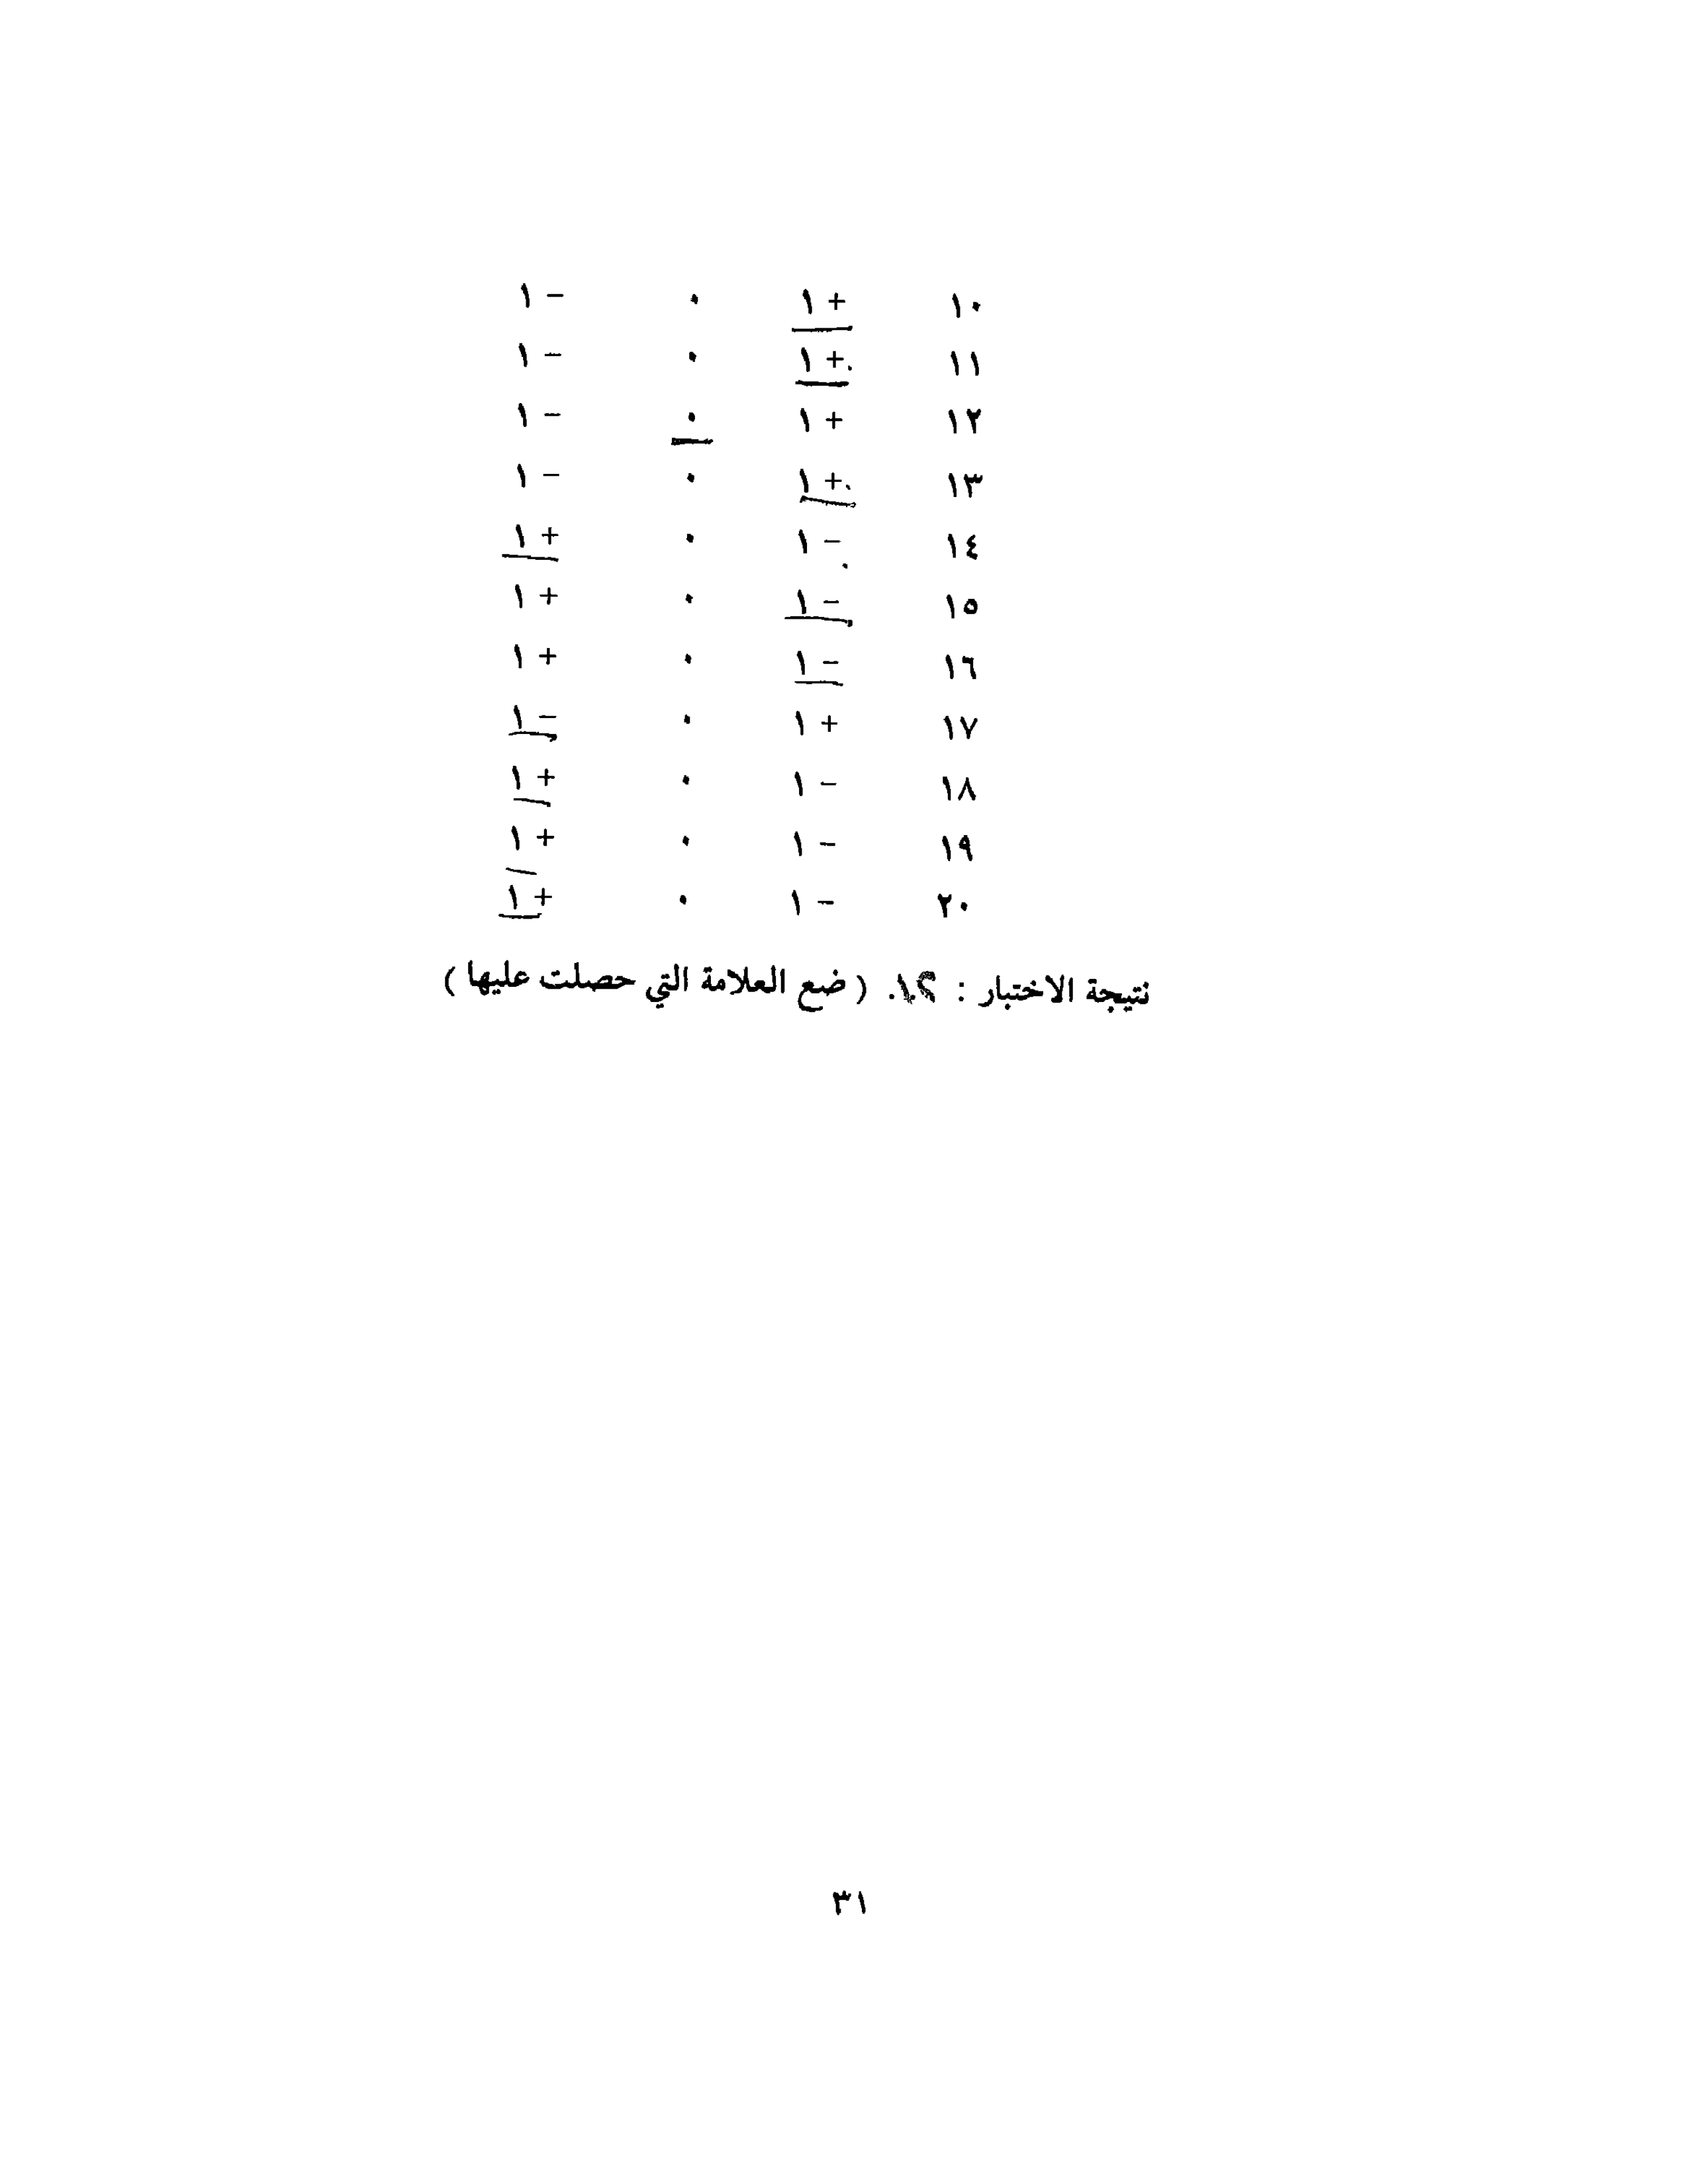 ١٠ + ١ ٠ - ١
١١ + ١ ٠ - ١
١٢ + ١ ٠ - ١
١٣ + ١ ٠ - ١
١٤ - ١ ٠ + ١
١٥ - ١ ٠ + ١
١٦ - ١ ٠ + ١
١٧ + ١ ٠ - ١
١٨ - ١ ٠ + ١
١٩ - ١ ٠ + ١
٢٠ - ١ ٠ + ١
نتيجة الاختبار : ( ضع العلامة التي حصلت عليها )
٣١